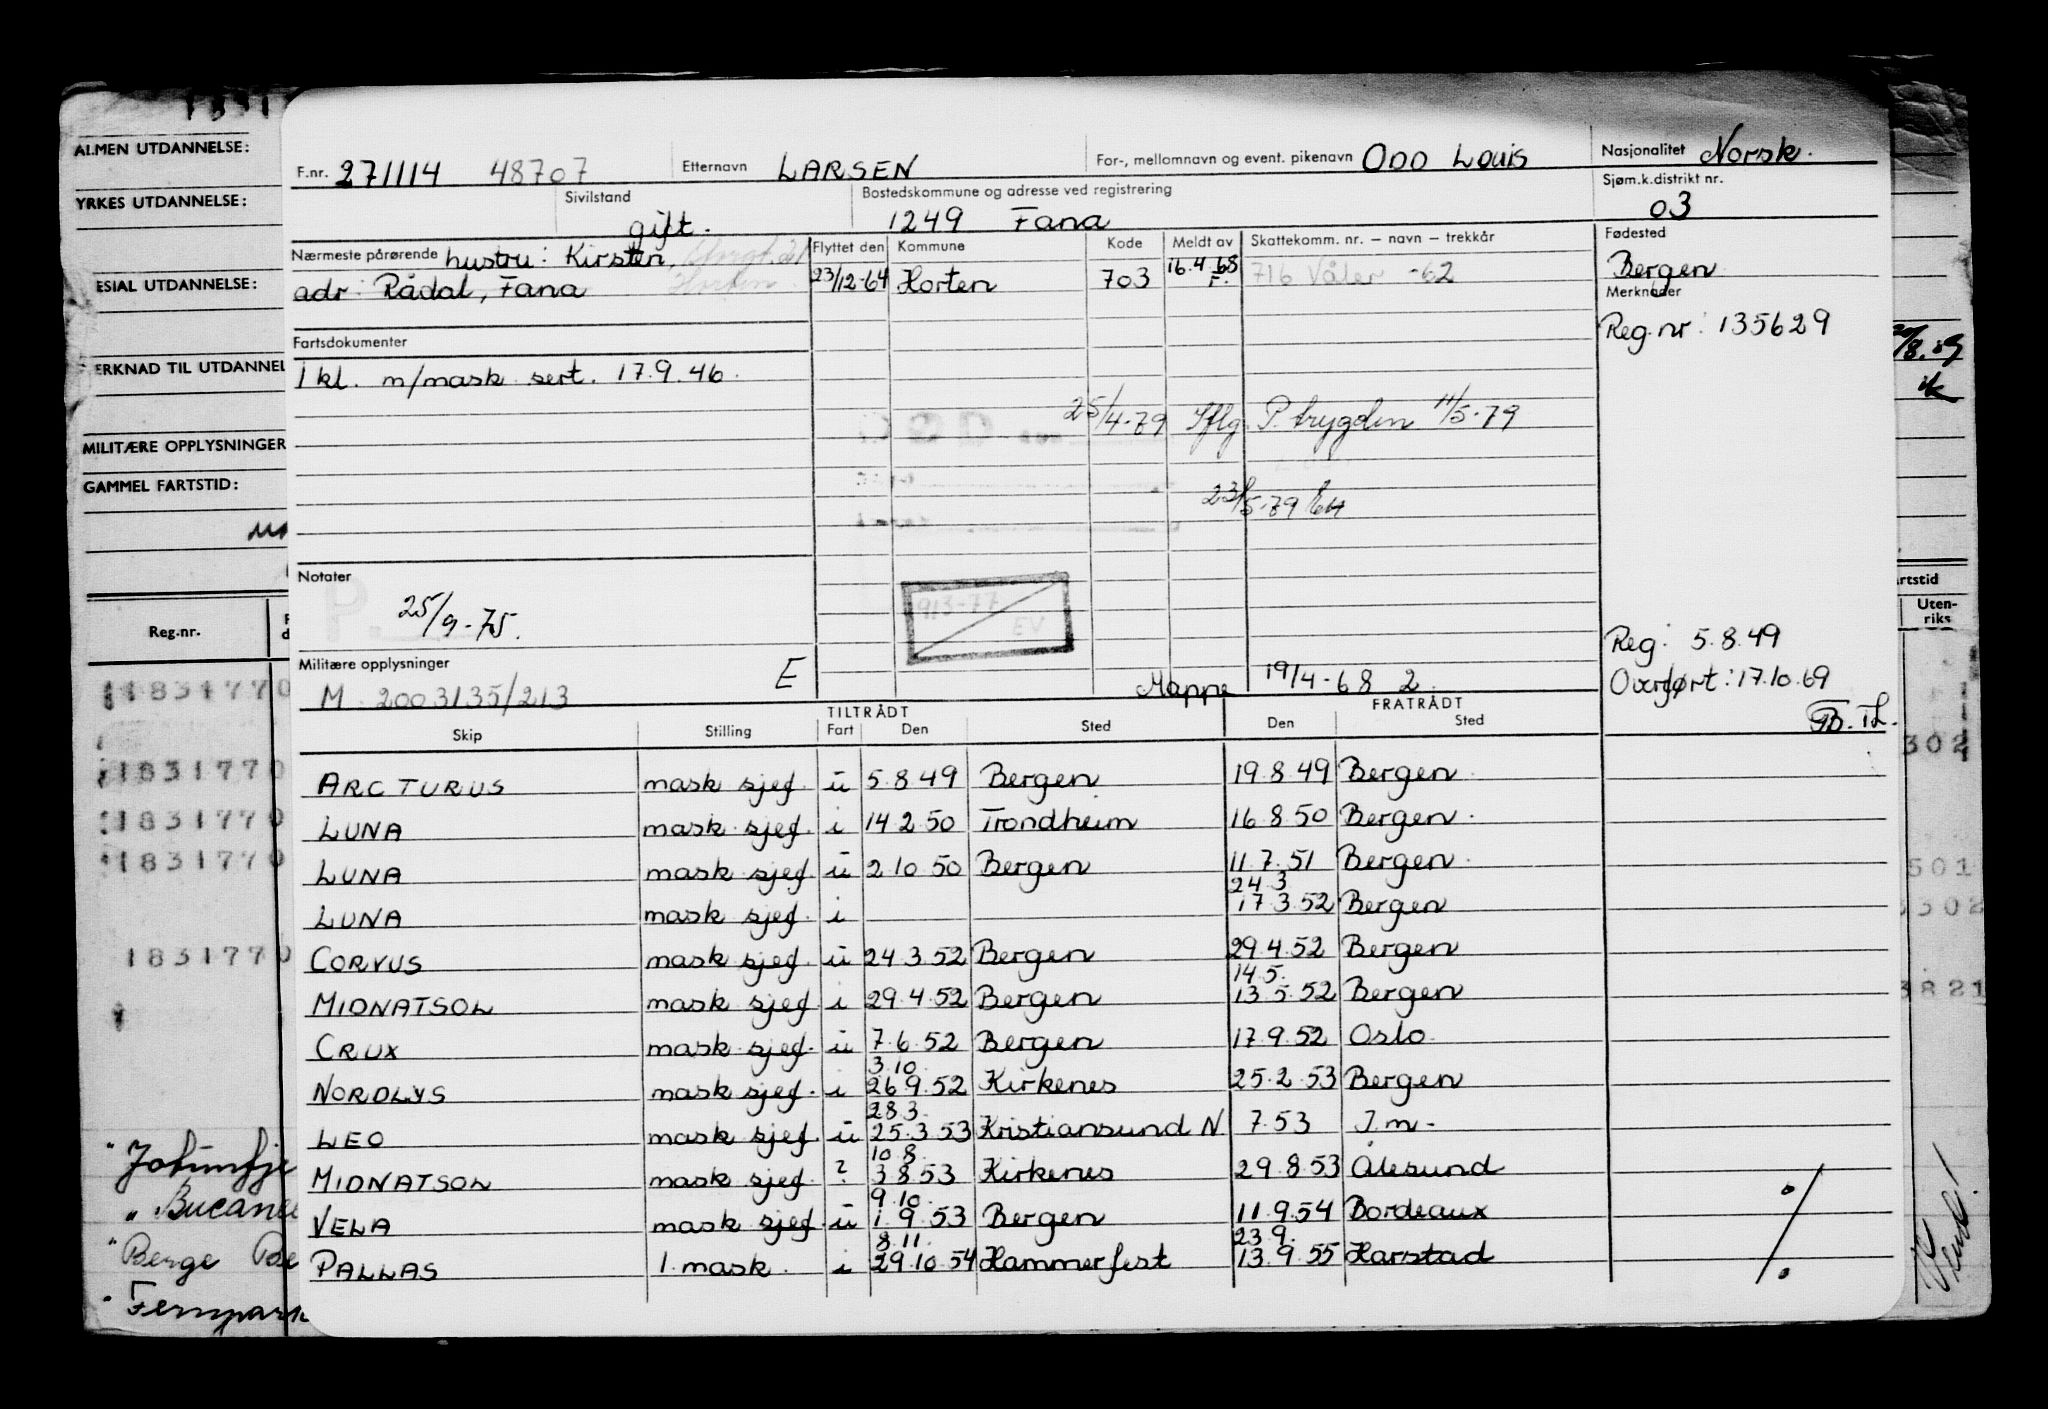 ALMEN UTDANNELSE:
YRKES UTDANNELSE:
ESIAL UTDANNELSE:
ERKNAD TIL UTDANNEL
MILITÆRE OPPLYSNINGER
GAMMEL FARTSTID:
Reg.nr.
1831770
1831770
1831770
1831770
1831770
F.nr. 271114 48707 Etternavn LARSEN For-, mellomnavn og event. pikenavn ODD LOUIS Nasjonalitet Norsk.
Sivilstand gift. Bostedskommune og adresse ved registrering 1249 Fana Sjøm.k.distrikt nr. 03
Nærmeste pårørende hustru: Kirsten, Flyttet den Kommune Kode Meldt av Skattekomm. nr. – navn – trekkår Fødested
adr: Rådal, Fana Horten 23/12-64 Horten 703 16.4.68 F. 716 Våler -62 Bergen
Merknader
Reg.nr: 135629
Fartsdokumenter
I kl. m/mask sert. 17.9.46.
25/4-79 Iflg. P. trygden 11/5-79
23/5-79
Notater
25/9-75.
913-77
EV
Militære opplysninger E
M 2003135/213
Mappe 19/4-68 2.
Reg: 5.8.49
Overført: 17.10.69
TILTRÅDT FRATRÅDT
Skip Stilling Fart Den Sted Den Sted
ARCTURUS mask sjef. u 5.8.49 Bergen 19.8.49 Bergen
LUNA mask sjef. i 14.2.50 Trondheim 16.8.50 Bergen.
LUNA mask sjef. u 2.10.50 Bergen 11.7.51 Bergen.
24.3
LUNA mask sjef. i 17.3.52 Bergen
CORVUS mask sjef. u 24.3.52 Bergen 29.4.52 Bergen
14.5.
MIDNATSOL mask sjef. i 29.4.52 Bergen 13.5.52 Bergen
CRUX mask sjef. u 7.6.52 Bergen 17.9.52 Oslo
3.10.
NORDLYS mask sjef. i 26.9.52 Kirkenes 25.2.53 Bergen
28.3.
LEO mask sjef. u 25.3.53 Kristiansund N 7.53 I.m-
10.8.
MIDNATSOL mask sjef. ? 3.8.53 Kirkenes 29.8.53 Ålesund
9.10.
VELA mask sjef. u 1.9.53 Bergen 11.9.54 Bordeaux
8.11. 23.9.
PALLAS 1. mask. i 29.10.54 Hammerfest 13.9.55 Harstad
Uten-
riks
302
501
302
3821
Berge